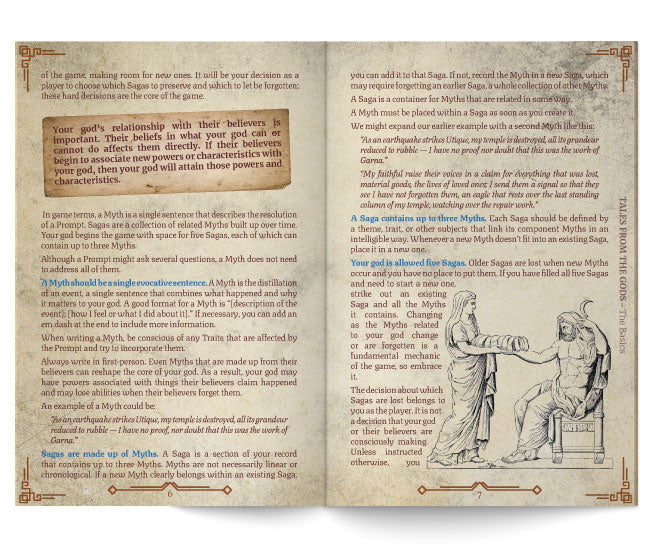 of the game, making room for new ones. It will be your decision as a
player to choose which Sagas to preserve and which to let be forgotten;
these hard decisions are the core of the game.
Your god's relationship with their believers is
important. Their beliefs in what your god can or
cannot do affects them directly. If their believers
begin to associate new powers or characteristics with
your god, then your god will attain those powers and
characteristics.
In game terms, a Myth is a single sentence that describes the resolution
of a Prompt. Sagas are a collection of related Myths built up over time.
Your god begins the game with space for five Sagas, each of which can
contain up to three Myths.
Although a Prompt might ask several questions, a Myth does not need
to address all of them.
A Myth should be a single evocative sentence. A Myth is the distillation
of an event, a single sentence that combines what happened and why
it matters to your god. A good format for a Myth is "[description of the
event]; [how I feel or what I did about it]." If necessary, you can add an
em dash at the end to include more information.
When writing a Myth, be conscious of any Traits that are affected by
the Prompt and try to incorporate them.
Always write in first-person. Even Myths that are made up from their
believers can reshape the core of your god. As a result, your god may
have powers associated with things their believers claim happened
and may lose abilities when their believers forget them.
An example of a Myth could be:
"As an earthquake strikes Utique, my temple is destroyed, all its grandeur
reduced to rubble — I have no proof, nor doubt that this was the work of
Garna."
Sagas are made up of Myths. A Saga is a section of your record
that contains up to three Myths. Myths are not necessarily linear or
chronological. If a new Myth clearly belongs within an existing Saga,
6
you can add it to that Saga. If not, record the Myth in a new Saga, which
may require forgetting an earlier Saga, a whole collection of other Myths.
A Saga is a container for Myths that are related in some way.
A Myth must be placed within a Saga as soon as you create it.
We might expand our earlier example with a second Myth like this:
"As an earthquake strikes Utique, my temple is destroyed, all its grandeur
reduced to rubble — I have no proof nor doubt that this was the work of
Garna."
"My faithful raise their voices in a claim for everything that was lost,
material goods, the lives of loved ones; I send them a signal so that they
see I have not forgotten them, an eagle that rests over the last standing
column of my temple, watching over the repair work."
A Saga contains up to three Myths. Each Saga should be defined by
a theme, trait, or other subjects that link its component Myths in an
intelligible way. Whenever a new Myth doesn't fit into an existing Saga,
place it in a new one.
Your god is allowed five Sagas. Older Sagas are lost when new Myths
occur and you have no place to put them. If you have filled all five Sagas
and need to start a new one,
strike out an existing
Saga and all the Myths
it contains. Changing
as the Myths related
to your god change
or are forgotten is a
fundamental mechanic
of the game, so embrace
it.
The decision about which
Sagas are lost belongs to
you as the player. It is not
a decision that your god
or their believers are
consciously making.
Unless instructed
otherwise, you
7
TALES FROM THE GODS – The Basics